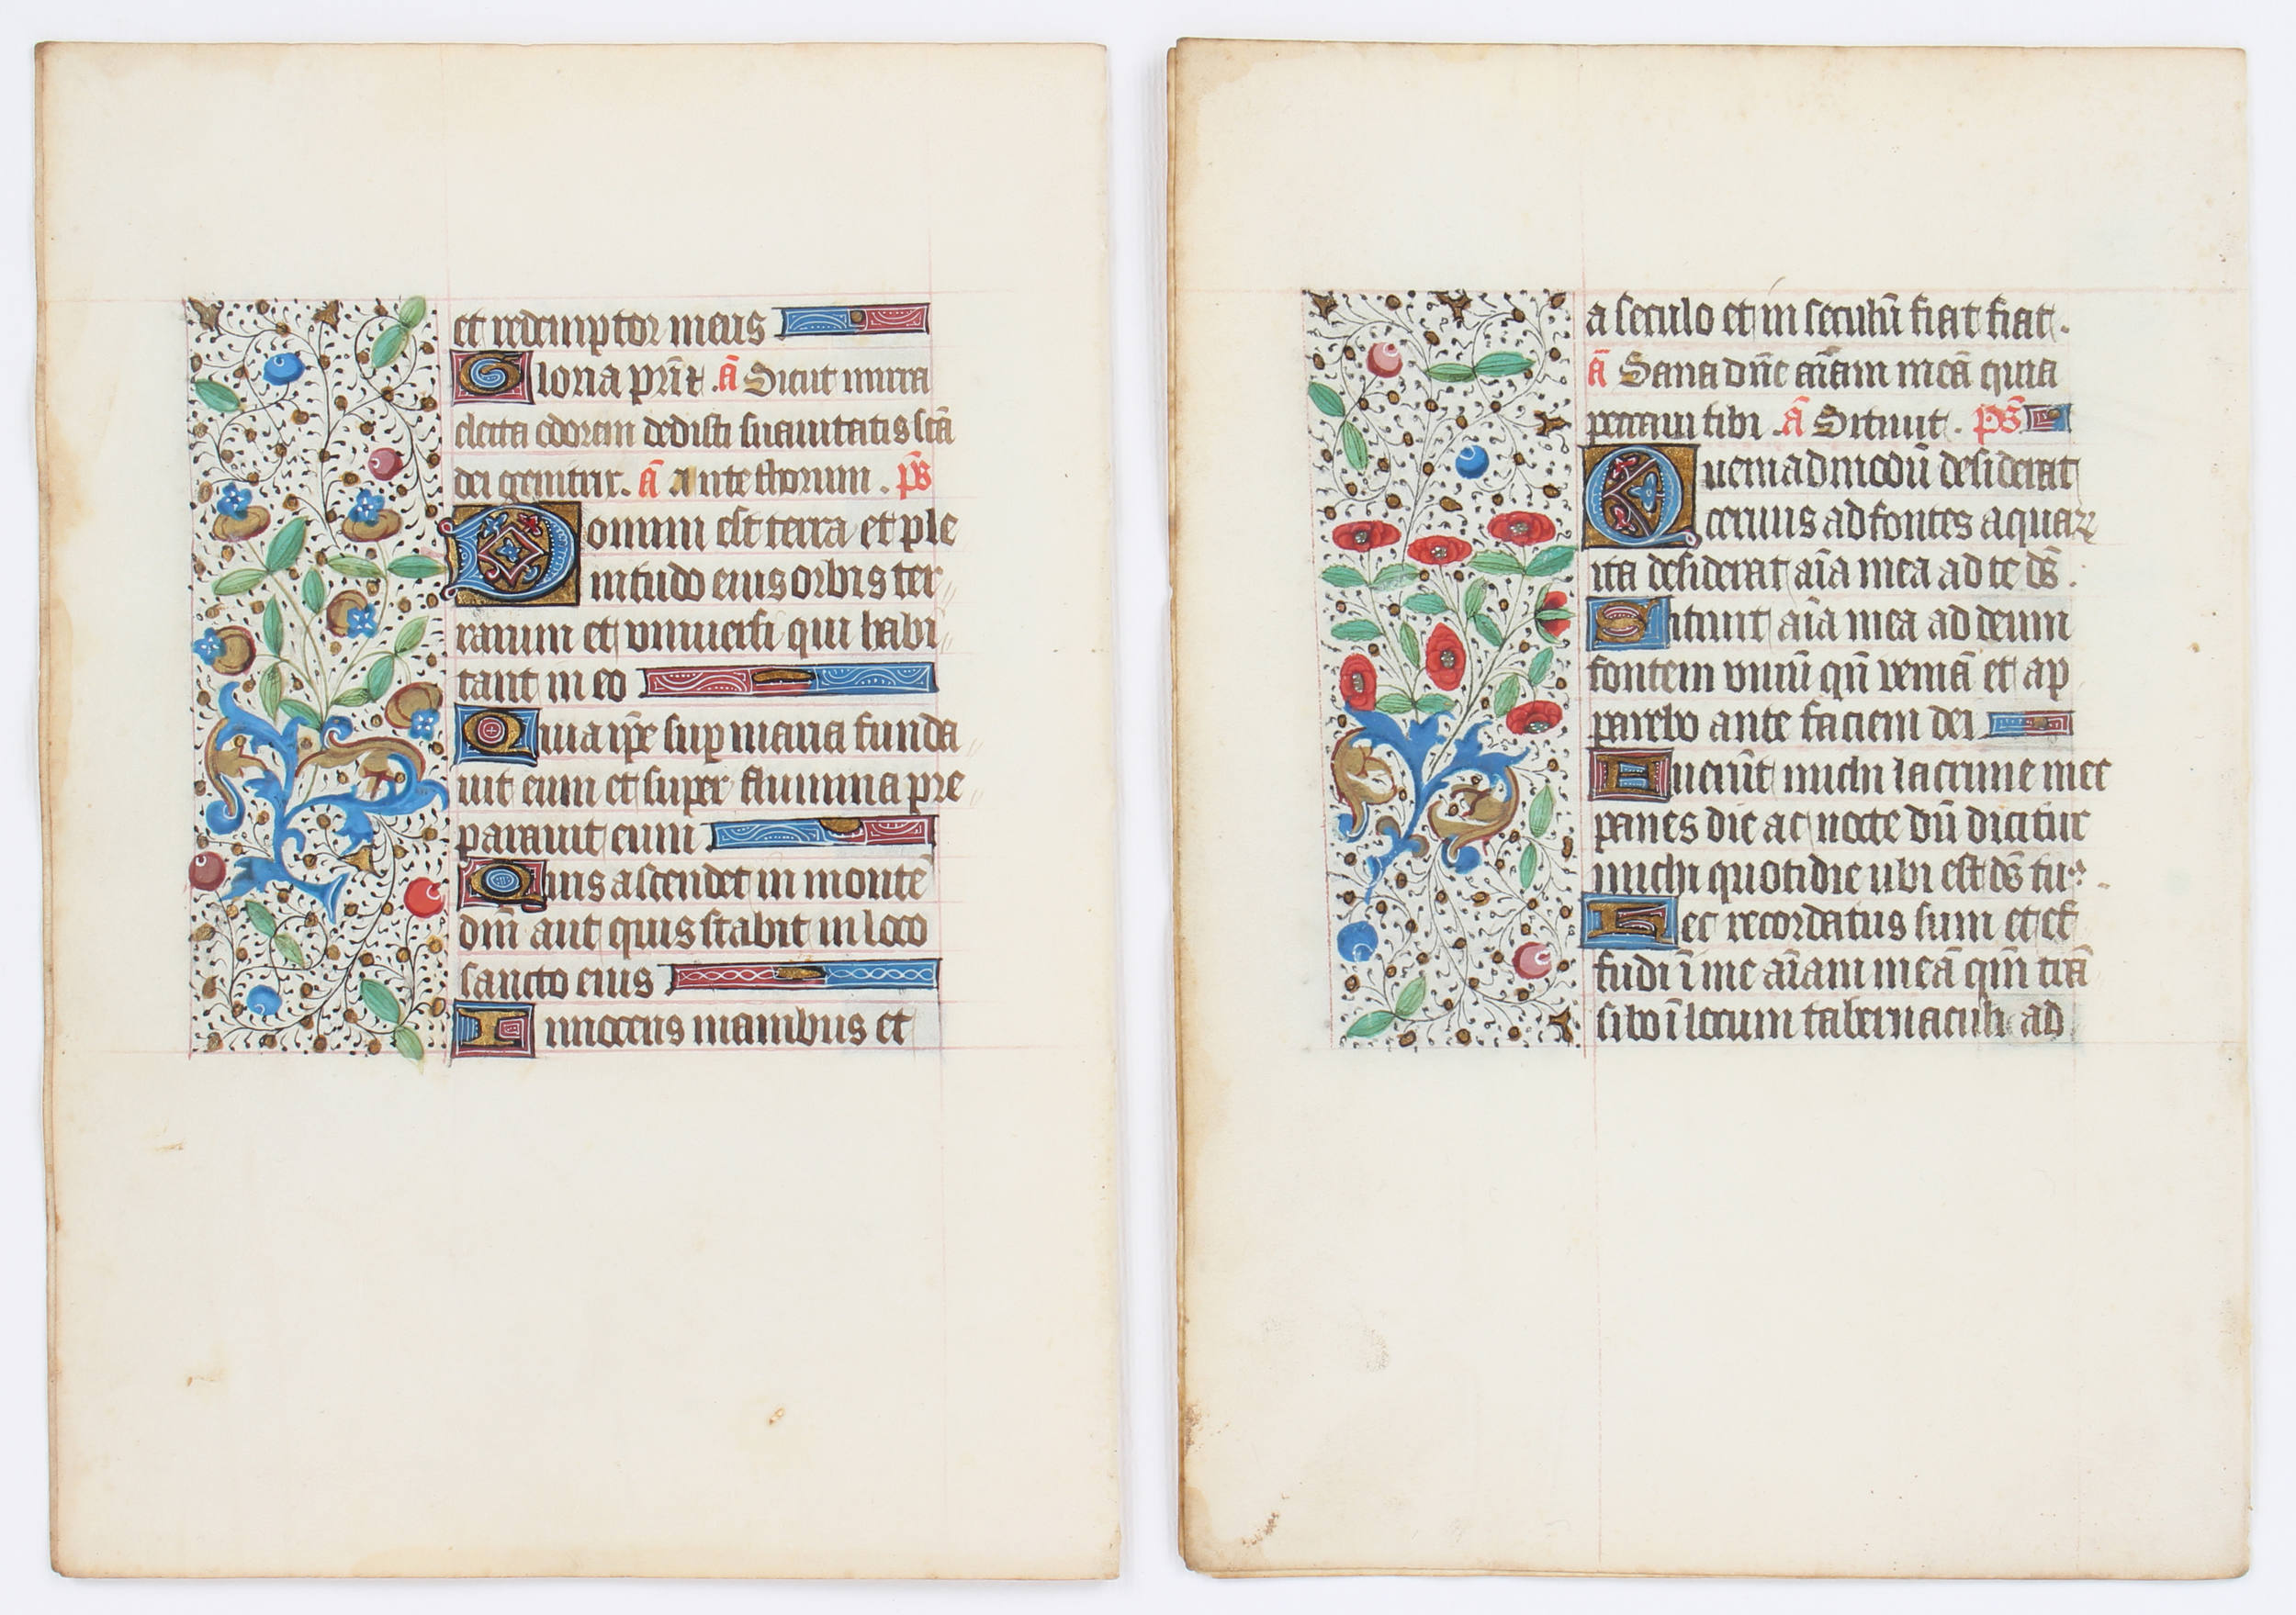 et redemptor meus
Gloria pr̄i⁊ .a᷄ Sicut mirra
electa odorem dedisti suauitatis sc̄a
dei genitrix. a᷄ Ante thorum . p̄s
Domini est terra et ple
nitudo eius orbis ter
rarum et vniuersi qui habi
tant in eo
Quia ip̄e sup maria funda
uit eum et super flumina pre
parauit eum
Quis ascendet in montē
dn̄i aut quis stabit in loco
sancto eius
Innocens manibus et
a seculo et in seculū fiat fiat.
a᷄ Sana dn̄e aīam meā quia
peccaui tibi .a᷄ Sitiuit. p̄s
Quemadmodū desiderat
ceruus ad fontes aquaꝝ
ita desiderat aīa mea ad te ds̄ .
Sitiuit aīa mea ad deum
fontem viuū qn̄ veniā et ap
parebo ante faciem dei
Fuerūt michi lacrime mee
panes die ac nocte dū dicitur
michi quotidie ubi est ds̄ tuꝰ.
Hec recordatus sum et ef
fudi ī me aīam meā qm̄ trā
sibo ī locum tabernaculi ad